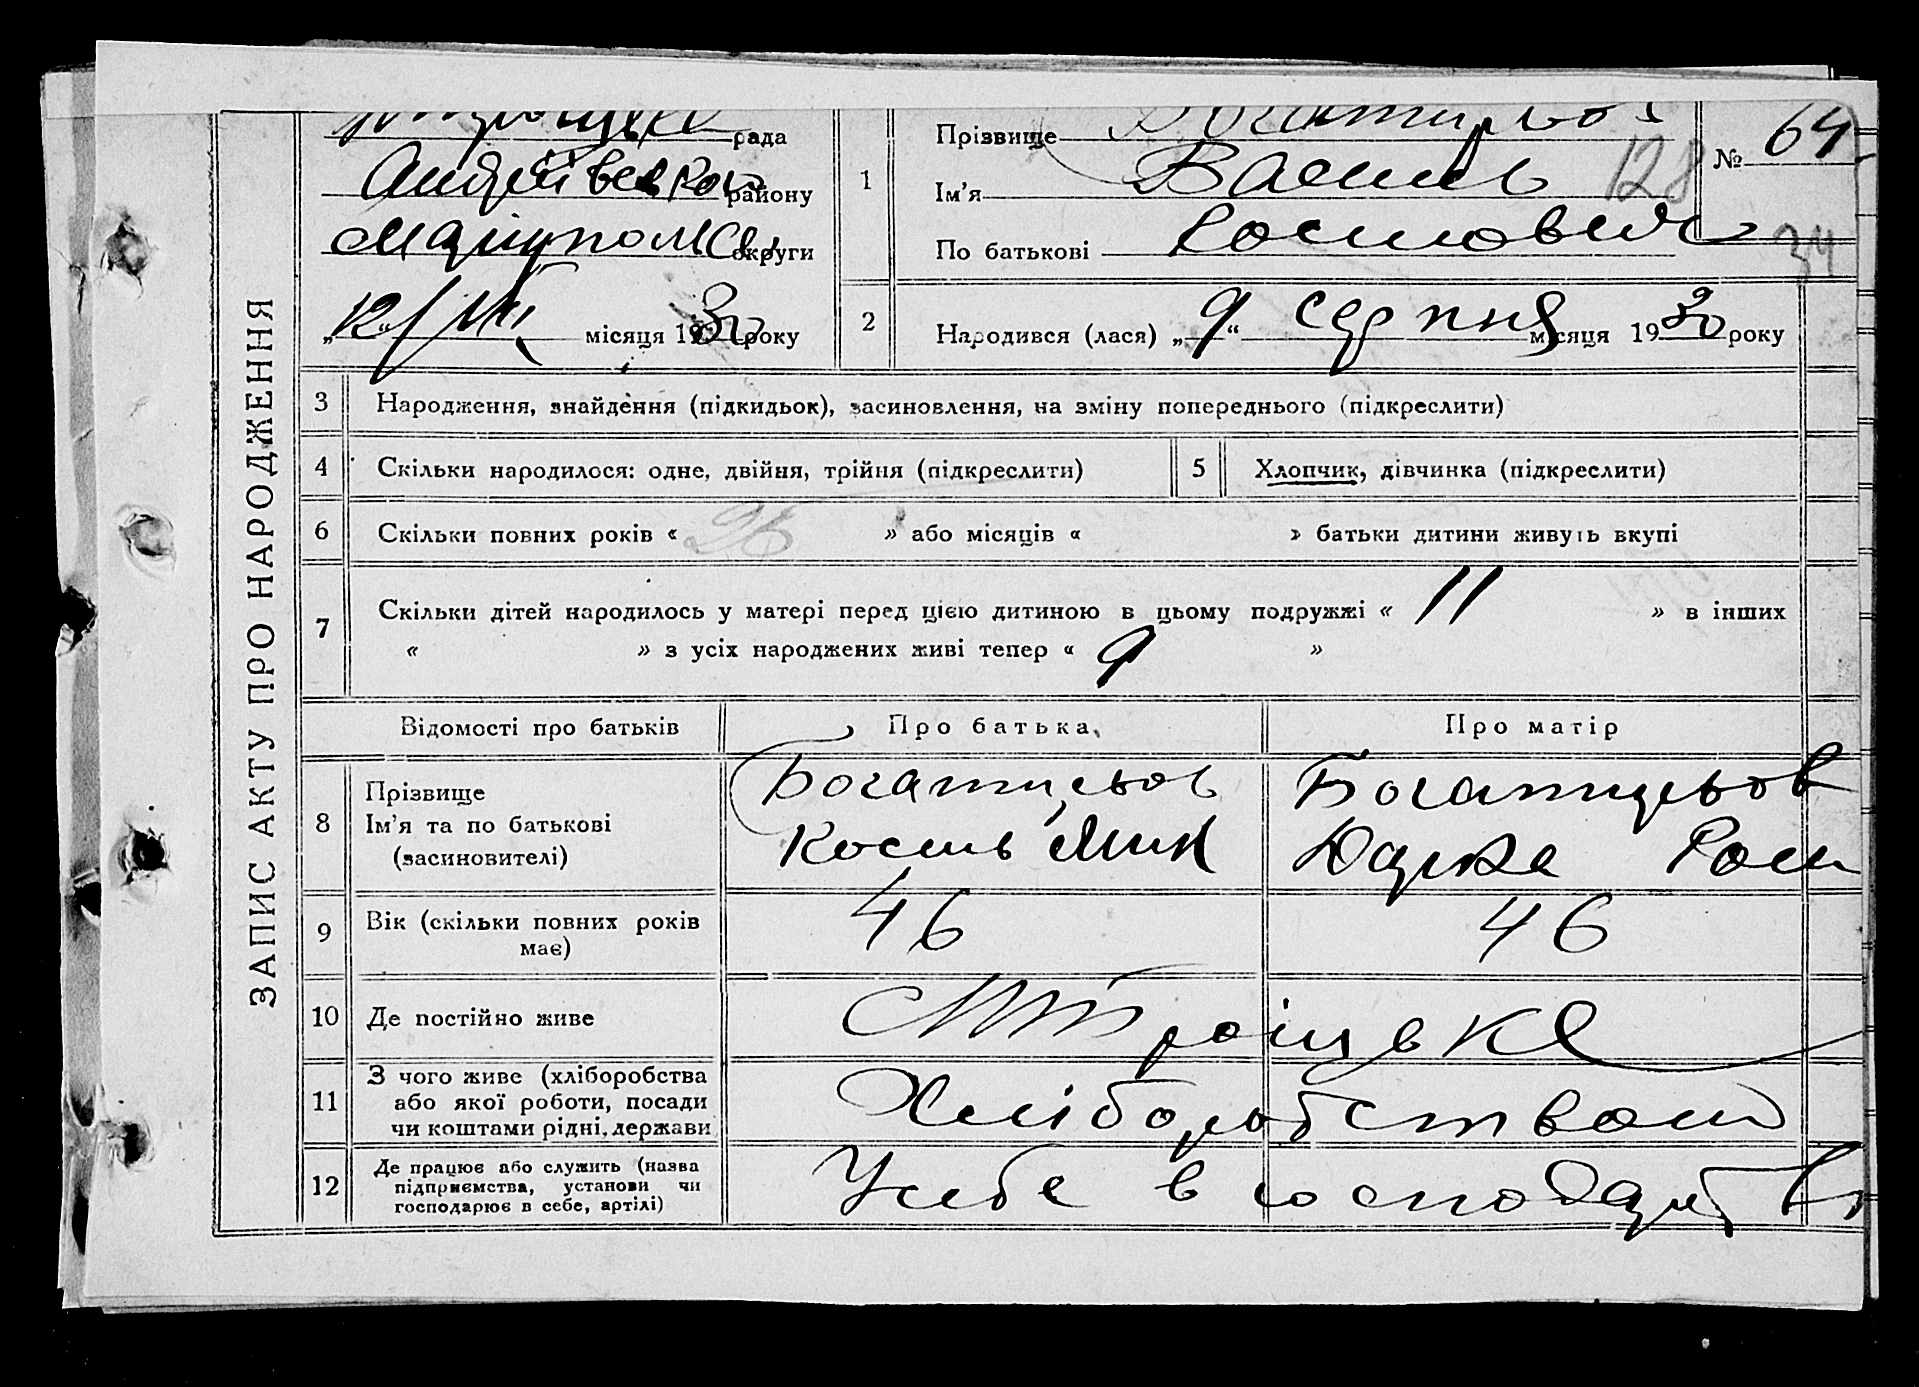 ЗАПИС АКТУ ПРО НАРОДЖЕННЯ
рада
Андріївсько району
Маріупольс округи
„12/VIII місяця 1930 року
1
Прізвище Богатирьов
Ім'я Василь
По батькові Космович
128
№ 64
34
2
Народився (лася) „9“ серпня місяця 1930 року
3
Народження, знайдення (підкидьок), засиновлення, на зміну попереднього (підкреслити)
4
Скільки народилося: одне, двійня, трійня (підкреслити)
5
Хлопчик, дівчинка (підкреслити)
6
Скільки повних років « 26 » або місяців « » батьки дитини живуть вкупі
7
Скільки дітей народилось у матері перед цією дитиною в цьому подружжі « 11 » в інших
« » з усіх народжених живі тепер « 9 »
Відомості про батьків
Про батька
Про матір
8
Прізвище
Ім'я та по батькові
(засиновителі)
Богатирьов
Космь Мих
Богатирьов
Дарка
9
Вік (скільки повних років
має)
46
46
10
Де постійно живе
Троіцьке
11
З чого живе (хліборобства
або якої роботи, посади
чи коштами рідні, держави
Хліборобством
12
Де працює або служить (назва
підприємства, установи чи
господарює в себе, артілі)
У себе в господарств